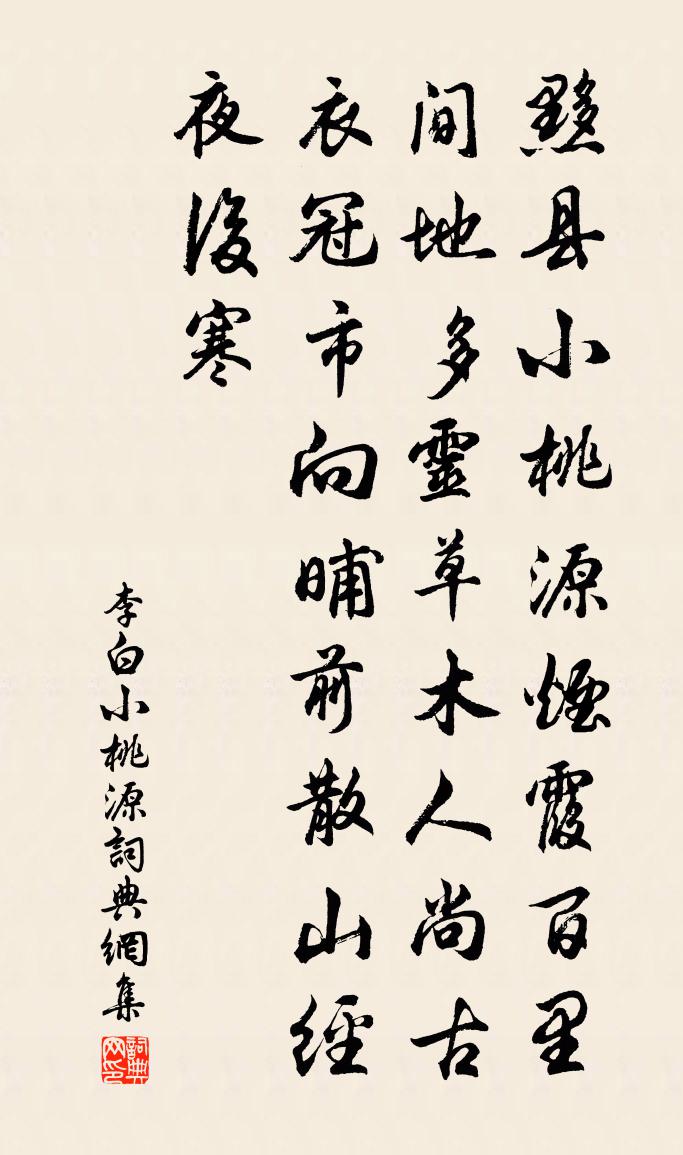 黟县小桃源煙霞百里
间地多靈草木人尚古
衣冠市向晡前散山經
夜後寒
李白小桃源詞典網集
詞典网印